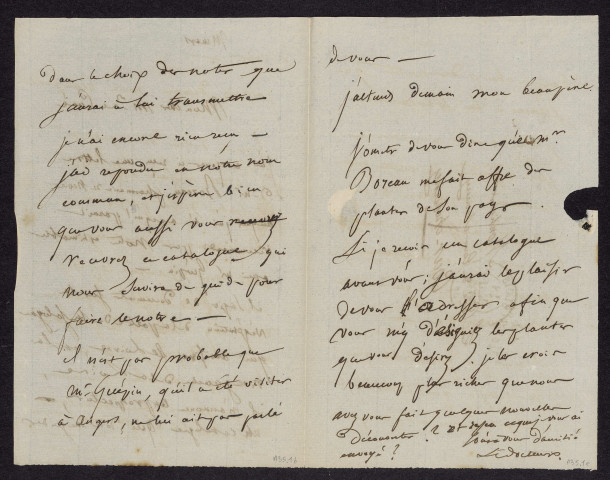 dans le choix des notes que
j'aurai à lui transmettre
je n'ai encore rien reçu —
j'ai repondu en nôtre nom
commun, et j'espère bien
que vous aussi vous
recevrez ce catalogue qui
nous servira de guide pour
faire le notre —
il n'est pas probable que
Mr Guépin, qu'il a été visiter
à Angers, ne lui ait pas parlé
de vous —
j'attends demain mon beau père
j'omets de vous dire que mr
Boreau me fait offre des
plantes de son pays.
Si je reçois un catalogue
avant vous; j'aurai le plaisir
de vous l'adresser afin que
vous m'y désigniez les plantes
que vous désirez; je les crois
beaucoup plus riches que nous
avez vous fait quelques nouvelles
découvertes? Mr
envoyé? vous d'amitié